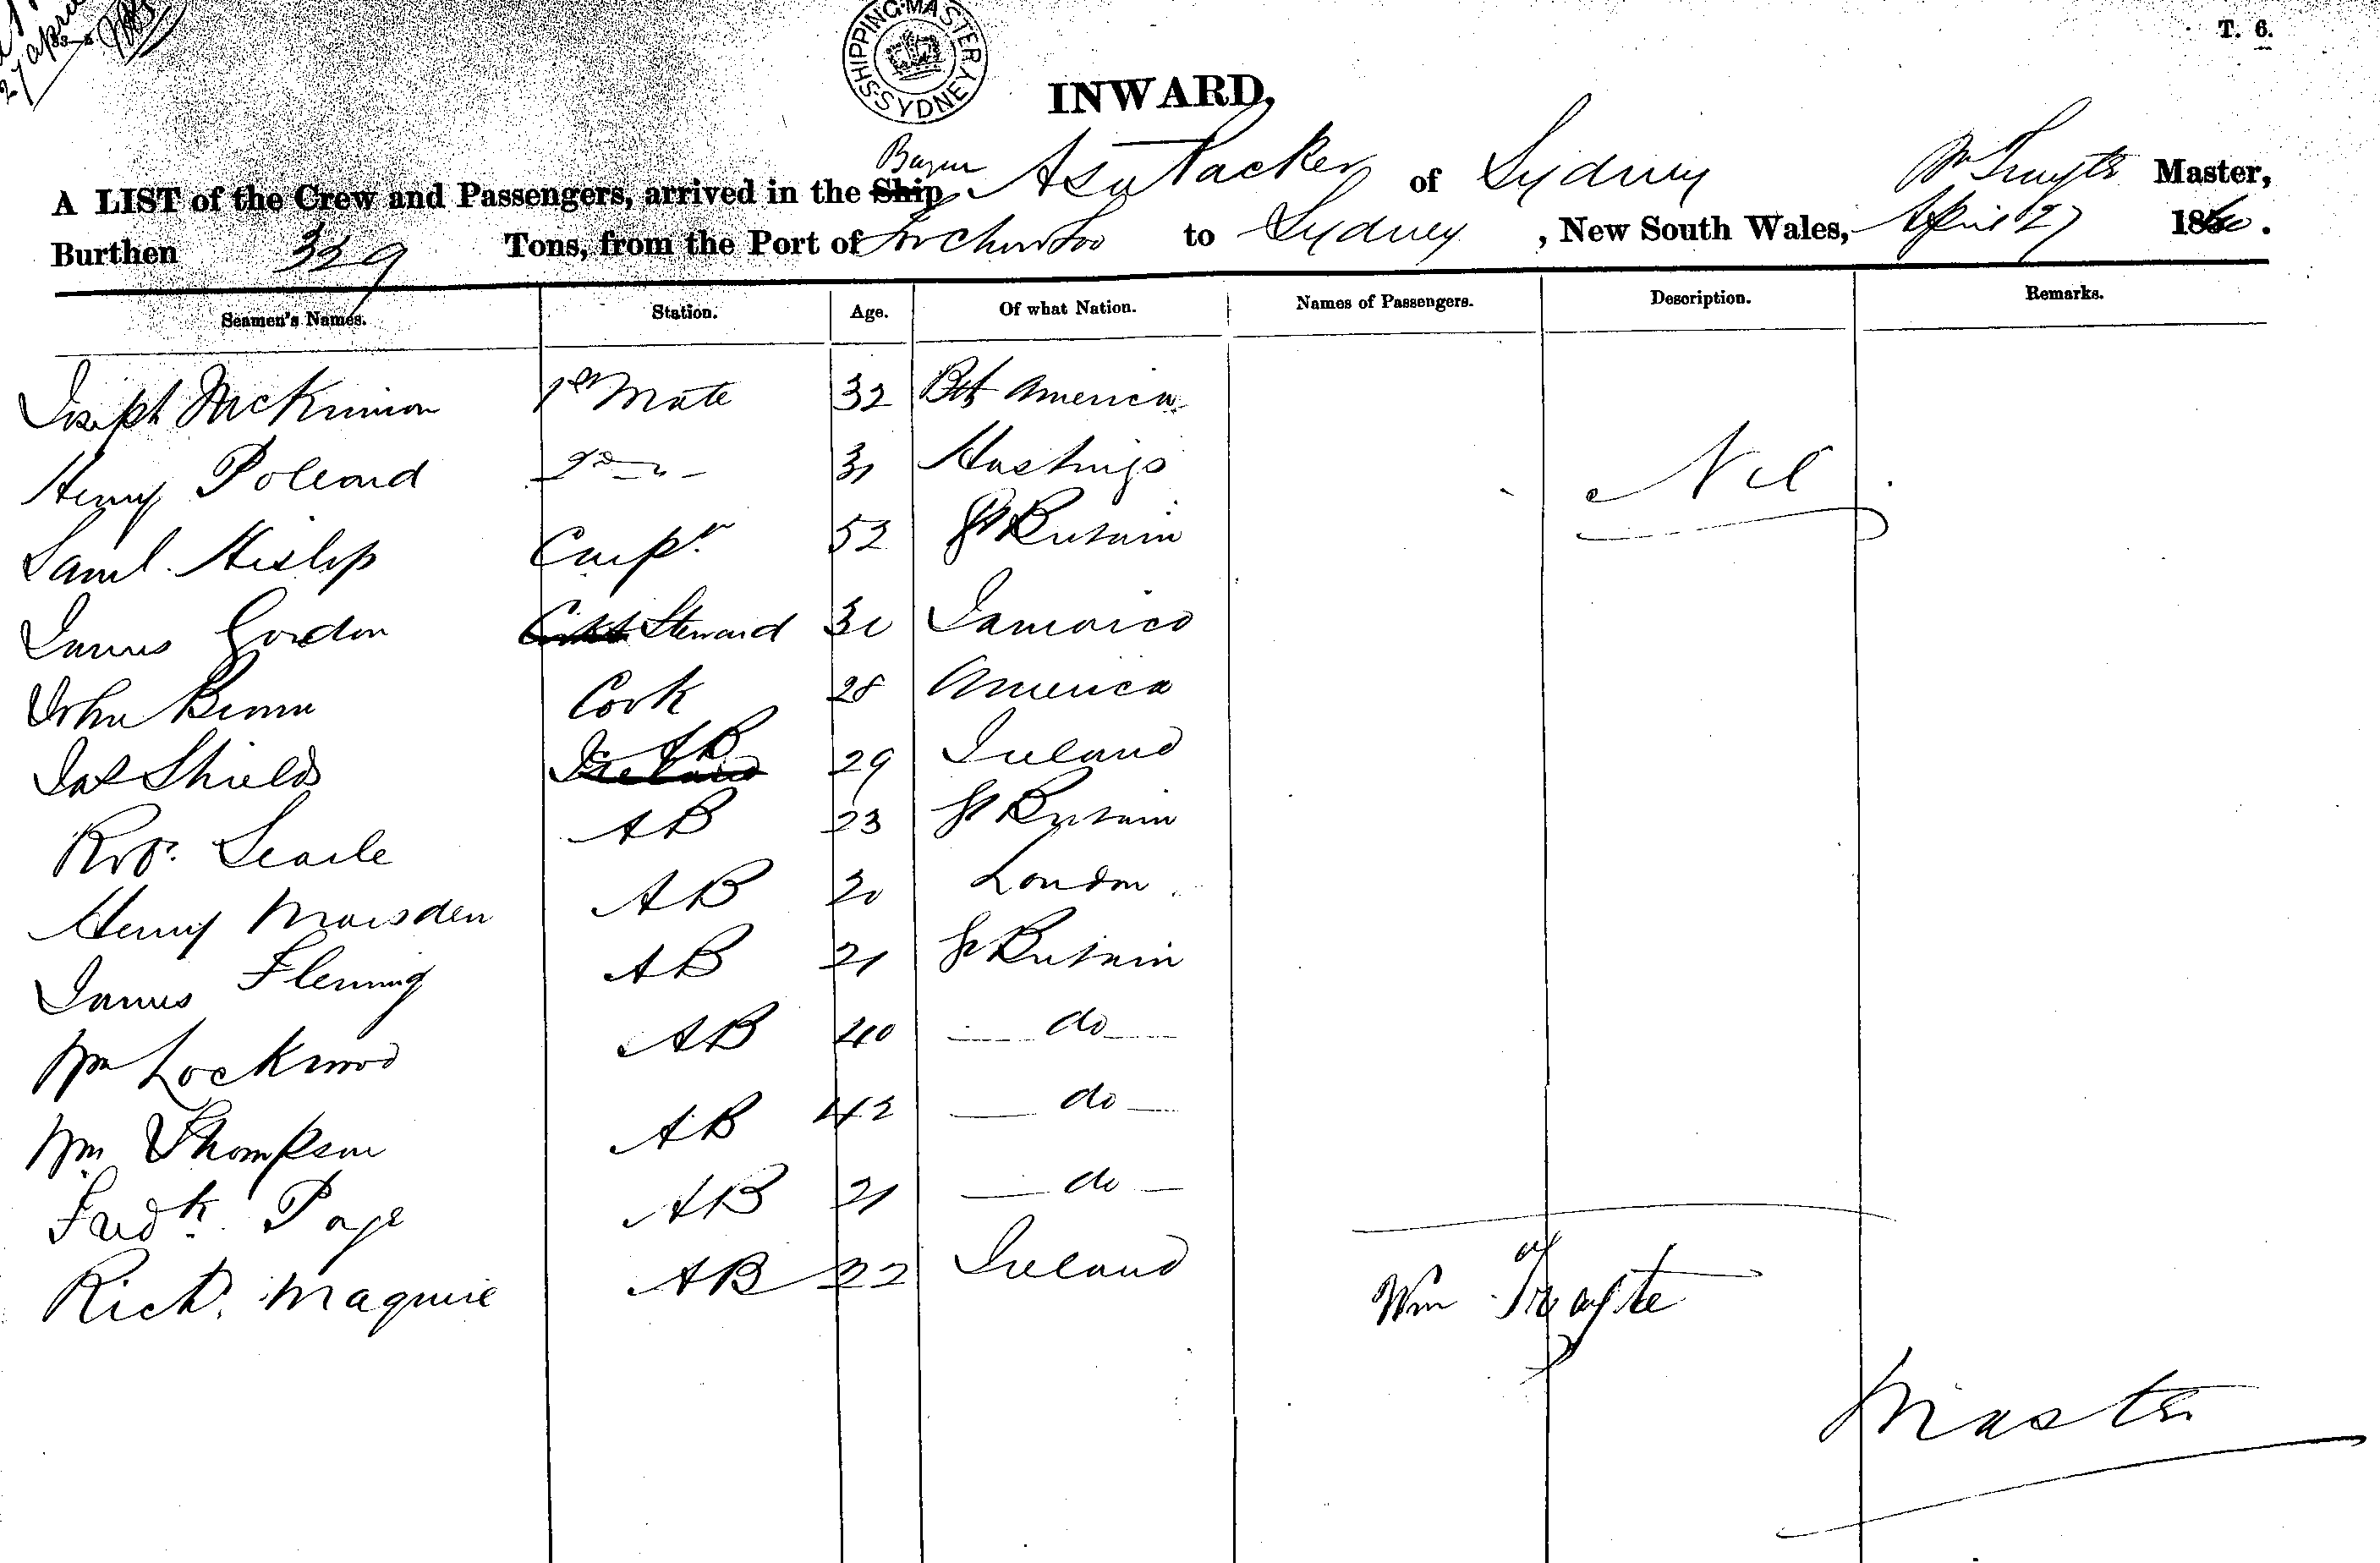 27 April
SHIPPING MASTER SYDNEY
T. 6.
INWARD,
A LIST of the Crew and Passengers, arrived in the Ship Barque Asa Packer of Sydney Wm Truyte Master,
Burthen 329 Tons, from the Port of Foo Chow Foo to Sydney, New South Wales, April 27 1860.
Seamen's Names. Station. Age. Of what Nation. Names of Passengers. Description. Remarks.
Joseph McKinnon 1st Mate 32 Brit America
Henry Pollard 2nd " 31 Hastings Nil
Saml. Hislop Carpr. 52 Gt Britain
James Gordon Steward 30 Jamaica
John Brown Cook 28 America
Jas Shields Ireland AB 29 Ireland
Robt. Searle AB 23 Gt Britain
Henry Marsden AB 20 London
James Fleming AB 21 Gt Britain
Wm Lockwood AB 40 do
Wm Thompson AB 42 do
Fredk. Page AB 21 do
Richd. Maguire AB 22 Ireland
Wm
Master